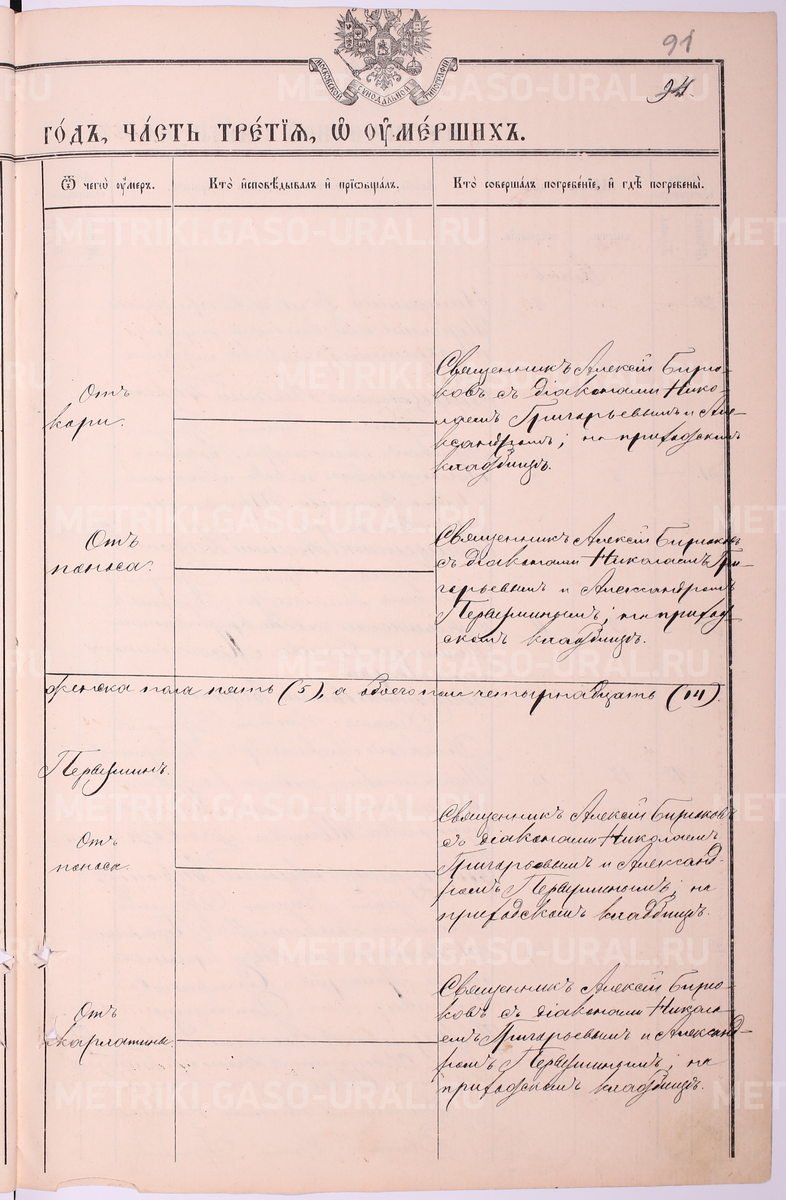 91
94.
МОСКОВСКОЙ СѴНОДАЛЬНОЙ ТИПОГРАФІИ
ГО́ДЪ, ЧА́СТЬ ТРЕ́ТІѦ, Ѡ҆ ОУ҆МЕ́РШИХЪ.
Ѿ чегѡ̀ оу҆́меръ.
Кто̀ и҆сповѣ́дывалъ и҆ прїѡбща́лъ.
Кто̀ соверша́лъ погребе́нїе, и҆ гдѣ̀ погребены̀.
Отъ
кори.
Священникъ Алексій Бирю-
ковъ съ діаконами Нико-
лаемъ Григорьевымъ и Але-
ксандромъ; на приходскомъ
кладбищѣ.
Отъ
поноса.
Священникъ Алексій Бирюковъ
съ діаконами Николаемъ Гри-
горьевымъ и Александромъ
Первушинымъ; на приход-
скомъ кладбищѣ.
женска пола пять (5), а обоего пола четырнадцать (14).
Первушинъ.
Отъ
поноса.
Священникъ Алексій Бирюковъ
съ діаконами Николаемъ
Григорьевымъ и Александ-
ромъ Первушинымъ; на
приходскомъ кладбищѣ.
Отъ
скарлатины.
Священникъ Алексій Бирю-
ковъ съ діаконами Никола-
емъ Григорьевымъ и Александ-
ромъ Первушинымъ; на
приходскомъ кладбищѣ.
METRIKI.GASO-URAL.RU